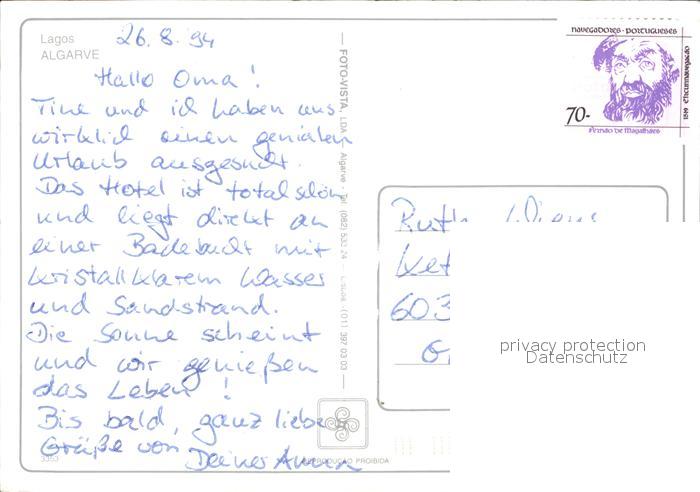 Lagos
ALGARVE
26.8.94
Hallo Oma!
Tine und ich haben uns
wirklich einen genialen
Urlaub ausgesucht.
Das Hotel ist total schön
und liegt direkt an
einer Badebucht mit
kristallklarem Wasser
und Sandstrand.
Die Sonne scheint
und wir genießen
das Leben!
Bis bald, ganz liebe
Grüße von Deiner
3353
REPRODUÇÃO PROIBIDA
FOTO-VISTA, LDA
Algarve
NAVEGADORES · PORTUGUESES
70-
Fernão de Magalhães
1519 Circumnavegação
Ruth
603
privacy protection
Datenschutz